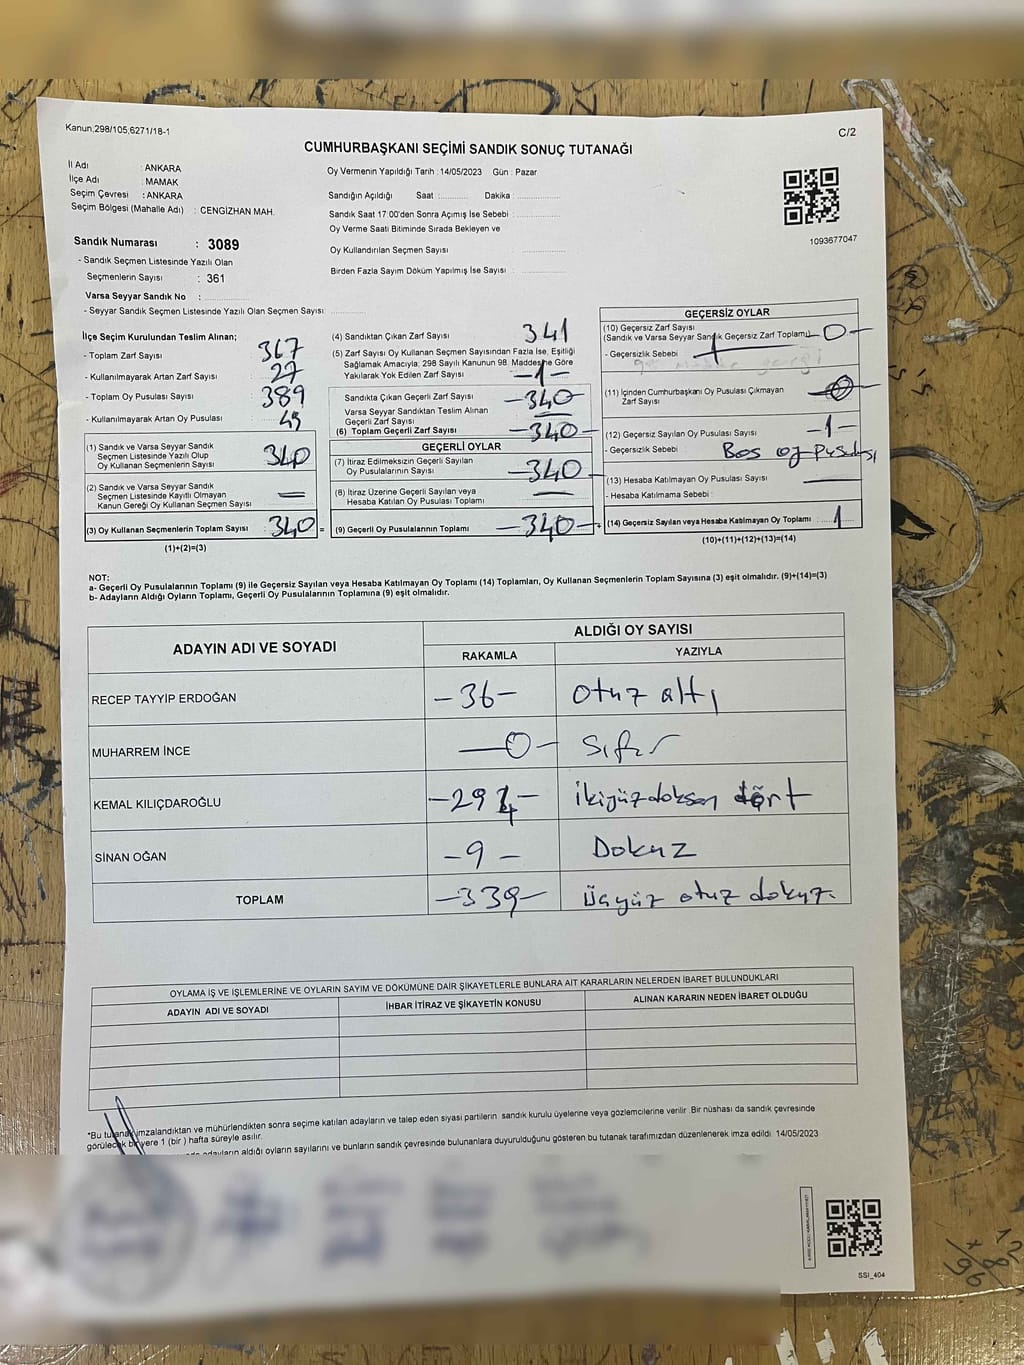 Kanun;298/105,6271/18-1
C/2
CUMHURBAŞKANI SEÇİMİ SANDIK SONUÇ TUTANAĞI
İl Adı : ANKARA
İlçe Adı : MAMAK
Seçim Çevresi : ANKARA
Seçim Bölgesi (Mahalle Adı) : CENGİZHAN MAH.
Sandık Numarası : 3089
- Sandık Seçmen Listesinde Yazılı Olan
Seçmenlerin Sayısı : 361
Varsa Seyyar Sandık No :
- Seyyar Sandık Seçmen Listesinde Yazılı Olan Seçmen Sayısı:
Oy Vermenin Yapıldığı Tarih : 14/05/2023 Gün : Pazar
Sandığın Açıldığı Saat : Dakika :
Sandık Saat 17:00'den Sonra Açımış İse Sebebi :
Oy Verme Saati Bitiminde Sırada Bekleyen ve
Oy Kullandırılan Seçmen Sayısı
Birden Fazla Sayım Döküm Yapılmış İse Sayısı :
1093677047
İlçe Seçim Kurulundan Teslim Alınan;
- Toplam Zarf Sayısı 367
- Kullanılmayarak Artan Zarf Sayısı 27
- Toplam Oy Pusulası Sayısı 389
- Kullanılmayarak Artan Oy Pusulası 49
(1) Sandık ve Varsa Seyyar Sandık
Seçmen Listesinde Yazılı Olup
Oy Kullanan Seçmenlerin Sayısı 340
(2) Varsa Sandık ve Seyyar Sandık
Seçmen Listesinde Kayıtlı Olmayan
Kanun Gereği Oy Kullanan Seçmen Sayısı
(3) Oy Kullanan Seçmenlerin Toplam Sayısı : 340 =
(1)+(2)=(3)
(4) Sandıktan Çıkan Zarf Sayısı 341
(5) Zarf Sayısı Oy Kullanan Seçmen Sayısından Fazla İse, Eşitliği
Sağlamak Amacıyla; 298 Sayılı Kanunun 98. Maddesine Göre
Yakılarak Yok Edilen Zarf Sayısı -1-
Sandıkta Çıkan Geçerli Zarf Sayısı -340-
Varsa Seyyar Sandıktan Teslim Alınan
Geçerli Zarf Sayısı
(6) Toplam Geçerli Zarf Sayısı -340-
GEÇERLİ OYLAR
(7) İtiraz Edilmeksizin Geçerli Sayılan
Oy Pusulalarının Sayısı -340-
(8) İtiraz Üzerine Geçerli Sayılan veya
Hesaba Katılan Oy Pusulası Toplamı
(9) Geçerli Oy Pusulalarının Toplamı -340- +
GEÇERSİZ OYLAR
(10) Geçersiz Zarf Sayısı
(Sandık ve Varsa Seyyar Sandık Geçersiz Zarf Toplamı) -0-
- Geçersizlik Sebebi
(11) İçinden Cumhurbaşkanı Oy Pusulası Çıkmayan
Zarf Sayısı
(12) Geçersiz Sayılan Oy Pusulası Sayısı -1-
- Geçersizlik Sebebi Boş oy pusulası
(13) Hesaba Katılmayan Oy Pusulası Sayısı
- Hesaba Katılmama Sebebi :
(14) Geçersiz Sayılan veya Hesaba Katılmayan Oy Toplamı 1
(10)+(11)+(12)+(13)=(14)
NOT:
a- Geçerli Oy Pusulalarının Toplamı (9) ile Geçersiz Sayılan veya Hesaba Katılmayan Oy Toplamı (14) Toplamları, Oy Kullanan Seçmenlerin Toplam Sayısına (3) eşit olmalıdır. (9)+(14)=(3)
b- Adayların Aldığı Oyların Toplamı, Geçerli Oy Pusulalarının Toplamına (9) eşit olmalıdır.
ADAYIN ADI VE SOYADI
ALDIĞI OY SAYISI
RAKAMLA YAZIYLA
RECEP TAYYİP ERDOĞAN -36- otuz altı
MUHARREM İNCE -0- Sıfır
KEMAL KILIÇDAROĞLU -294- ikiyüzdoksan dört
SİNAN OĞAN -9- Dokuz
TOPLAM -339- Üçyüz otuz dokuz.
OYLAMA İŞ VE İŞLEMLERİNE VE OYLARIN SAYIM VE DÖKÜMÜNE DAİR ŞİKAYETLERLE BUNLARA AİT KARARLARIN NELERDEN İBARET BULUNDUKLARI
ADAYIN ADI VE SOYADI İHBAR İTİRAZ VE ŞİKAYETİN KONUSU ALINAN KARARIN NEDEN İBARET OLDUĞU
*Bu tutanak imzalandıktan ve mühürlendikten sonra seçime katılan adayların ve talep eden siyasi partilerin sandık kurulu üyelerine veya gözlemcilerine verilir. Bir nüshası da sandık çevresinde
görülecek bir yere 1 (bir) hafta süreyle asılır.
adayların aldığı oyların sayılarını ve bunların sandık çevresinde bulunanlara duyurulduğunu gösteren bu tutanak tarafımızdan düzenlenerek imza edildi. 14/05/2023
SSI_404
12
+8
96